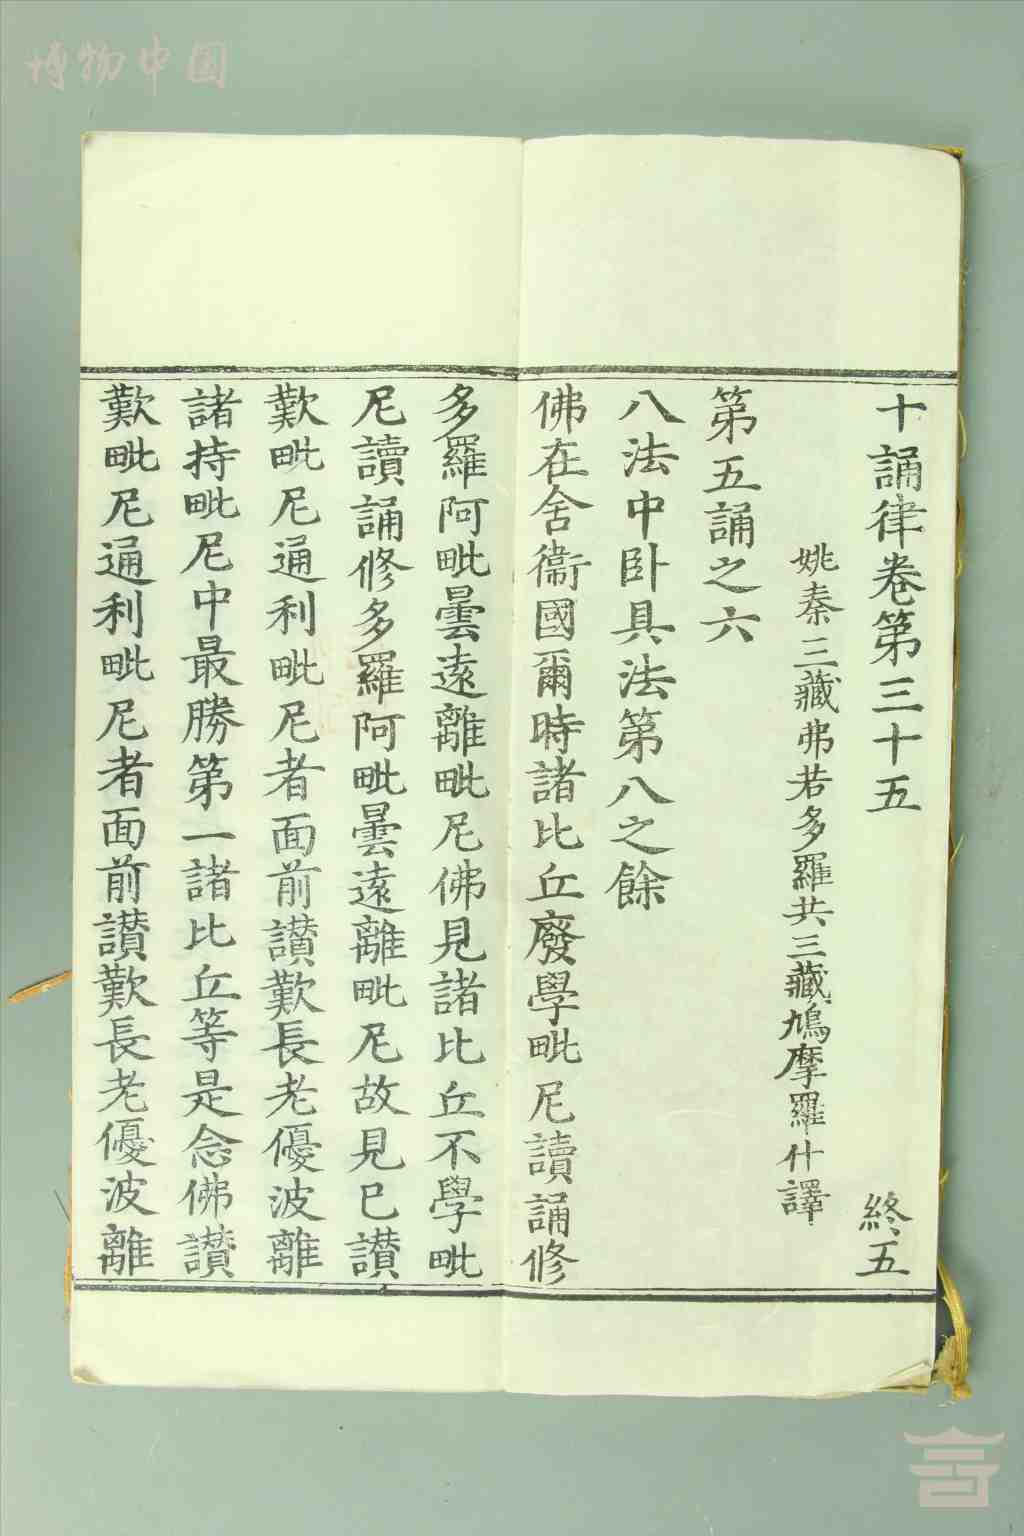 博物中国
十誦律卷第三十五 終五
姚秦三藏弗若多羅共三藏鳩摩羅什譯
第五誦之六
八法中卧具法第八之餘
佛在舍衞國爾時諸比丘廢學毗尼讀誦修
多羅阿毗曇遠離毗尼佛見諸比丘不學毗
尼讀誦修多羅阿毗曇遠離毗尼故見已讃
歎毗尼通利毗尼者面前讃歎長老優波離
諸持毗尼中最勝第一諸比丘等是念佛讃
歎毗尼通利毗尼者面前讃歎長老優波離